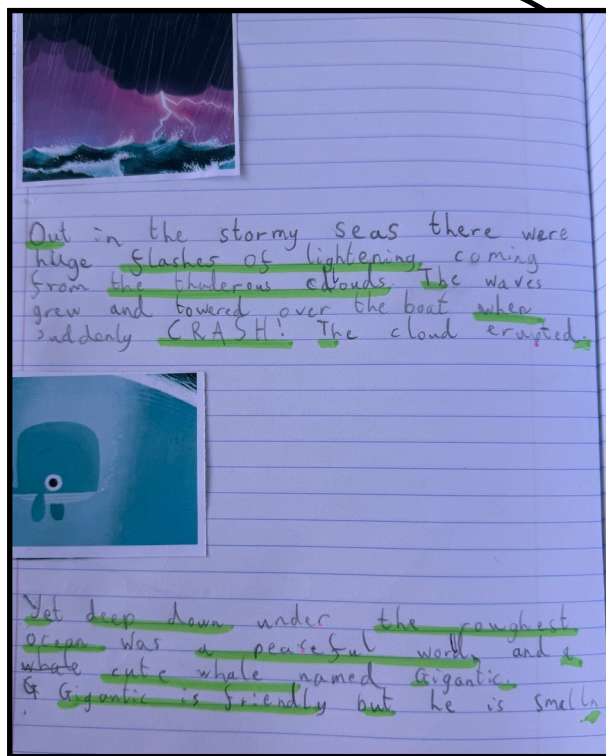 Out in the stormy seas there were
huge flashes of lightening coming
from the thuderous clouds. The waves
grew and towered over the boat when
suddenly CRASH! The cloud erupted.
Yet deep down under the roughest
ocean was a peaceful world, and a
whale cute whale named Gigantic.
G Gigantic is friendly but he is